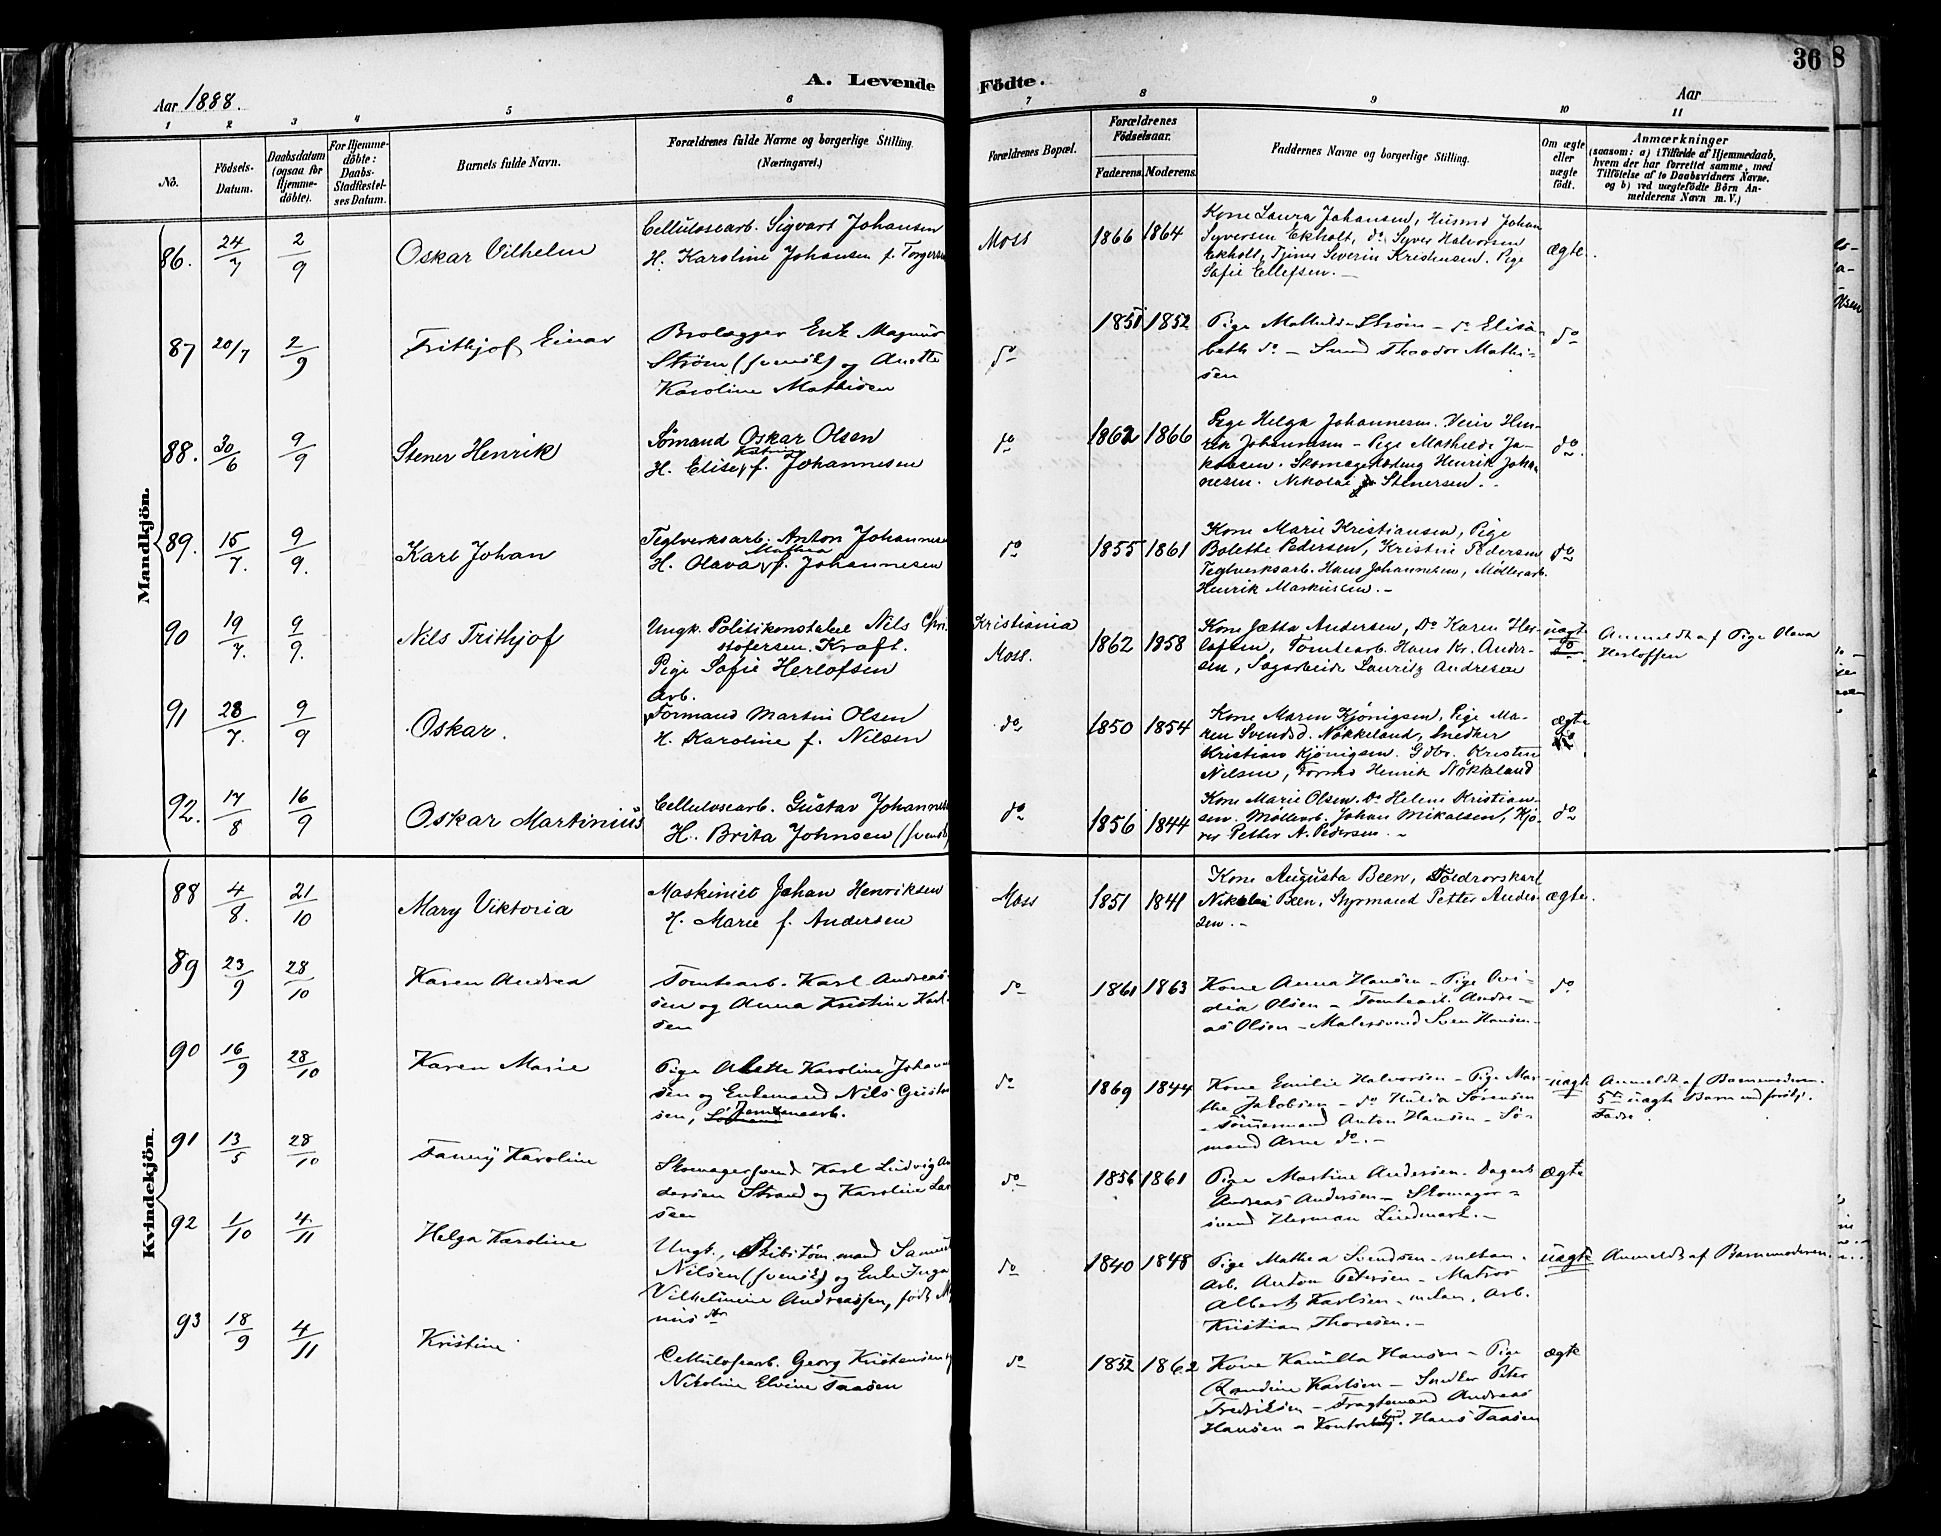 36
8
A. Levende Födte.
Aar 1888.
Aar
1 2 3 4 5 6 7 8 9 10 11
No.
Födsels-Datum.
Daabsdatum (ogsaa for Hjemme-döbte).
For Hjemme-döbte: Daabs-Stadfæstel-ses Datum.
Barnets fulde Navn.
Forældrenes fulde Navne og borgerlige Stilling. (Næringsvei.)
Forældrenes Bopæl.
Forældrenes Födselsaar.
Faderens. Moderens.
Faddernes Navne og borgerlige Stilling.
Om ægte eller uægte födt.
Anmærkninger
(saasom: a) i Tilfælde af Hjemmedaab, hvem der har forrettet samme, med Tilföielse af to Daabsvidners Navne, og b) ved uægtefödte Börn An-melderens Navn m. V.)
Mandkjön.
86. 24/7 2/9 Oskar Vilhelm
Cellulosearb. Sigvart Johansen
H. Karoline Johansen f. Torgersen
Moss 1866 1864
Kone Laura Johansen, Husmd Johan
Syversen Ekholt, do Syver Halvorsen
Ekholt, Tjener Severin Kristensen. Pige
Sofie Ellefsen.
ægte.
87 20/7 2/9 Frithjof Einar
Brolægger Erik Magnus
Ström (svensk) og Anette
Karoline Mathisen
do 1851 1852
Pige Mathilde Ström - do Elisa-
beth do - Smed Theodor Mathi-
sen
do
88. 30/6 9/9 Stener Henrik
Sömand Oskar Olsen
H. Elise Katrine f. Johannesen
do 1862 1866
Pige Helga Johannesen. Veier Hen-
rik Johannesen - Pige Mathilde Ja-
kobsen. Skomagerlærling Henrik Johan-
nesen. Nikolai Stenersen.
do.
89. 15/7. 9/9. Karl Johan
Teglverksarb. Anton Johannesen
H. Olava Mathea f. Johannesen
do 1855 1861
Kone Marie Kristiansen, Pige
Bolette Pedersen, Kristine Pedersen
Teglverksarb. Hans Johannesen, Möllerarb.
Henrik Markussen.
do
90 19/7. 9/9. Nils Frithjof
Ungk. Politikonstabel Nils Chri-
stofersen Kraft.
Pige Sofie Herlofsen
Kristiania
Moss.
1862 1858
Kone Jætta Andersen, Do Karen Her-
lofsen, Tomtearb. Hans Kr. Ander-
sen, Sagarbeider Lauritz Andresen
uægte
Anmeldt af Pige Olava
Herlofsen
91 28/7. 9/9 Oskar.
Arb.
Formand Martin Olsen
H. Karoline f. Nilsen
do 1850 1854
Kone Maren Kjönigsen, Pige Ma-
ren Svendsd. Nökkeland, Snedker
Kristian Kjönigsen. Gdbr. Kristen
Nilsen, Formd Henrik Nökkeland
ægte
92. 17/8 16/9 Oskar Martinius
Cellulosearb. Gustav Johannesen
H. Brita Johnsen (svensk)
do 1856 1844
Kone Marie Olsen. Do Helene Kristian-
sen. Möllerarb. Johan Mikalsen, Kjö-
rer Petter A. Pedersen.
do
Kvindekjön.
88 4/8. 21/10 Mary Viktoria
Maskinist Johan Henriksen
H. Marie f. Andersen
Moss 1851 1841
Kone Augusta Been, Toldrorskarl
Nikolai Been, Styrmand Petter Ander-
sen.
ægte.
89 23/9 28/10 Karen Andrea
Tomtearb. Karl Andreas-
sen og Anna Kristine Karl-
sen
do 1861 1863
Kone Anna Hansen - Pige Ovi-
dia Olsen - Tomtearb. Andre-
as Olsen - Malersvend Sven Hansen
do
90 16/9 28/10 Karen Marie
Pige Alette Karoline Johan
sen og Enkemand Nils Gustav
sen, Jernbanearb.
do 1869 1844
Kone Emilie Halvorsen - Pige Mar-
the Jakobsen - do Hulda Sörensen
- Tömmermand Anton Hansen - Sö-
mand Arne do. -
uægte
Anmeldt af Barnemoderen.
5te uægte Barn
Fadre.
91 13/5 28/10 Fanny Karoline
Skomagersvend Karl Ludvig An
dersen Strand og Karoline Lar
sen
do. 1856 1861
Pige Martine Andersen. Dagarb
Andreas Andersen - Skomager-
svend Herman Lindmark. -
ægte
92 1/10 4/11 Helga Karoline
Ungk., Skibstömmermand Samuel
Nilsen (svensk) og Enke Inga
Vilhelmine Andreassen, född M
do 1840 1848
Pige Mathea Svendsen - mekan.
Arb. Anton Petersen - Matros
Albert Karlsen - mekan. Arb.
Kristian Thoresen. -
uægte
Anmeldt af Barnemoderen.
93 18/9 4/11 Kristine
Cellulosearb. Georg Kristensen
Nikoline Elvine Taasen
do 1852 1862
Kone Kamilla Hansen - Pige
Randine Karlsen - Snedker Peter
Fredriksen - Fragtemand Andreas
Hansen - Hans Taasen
ægte